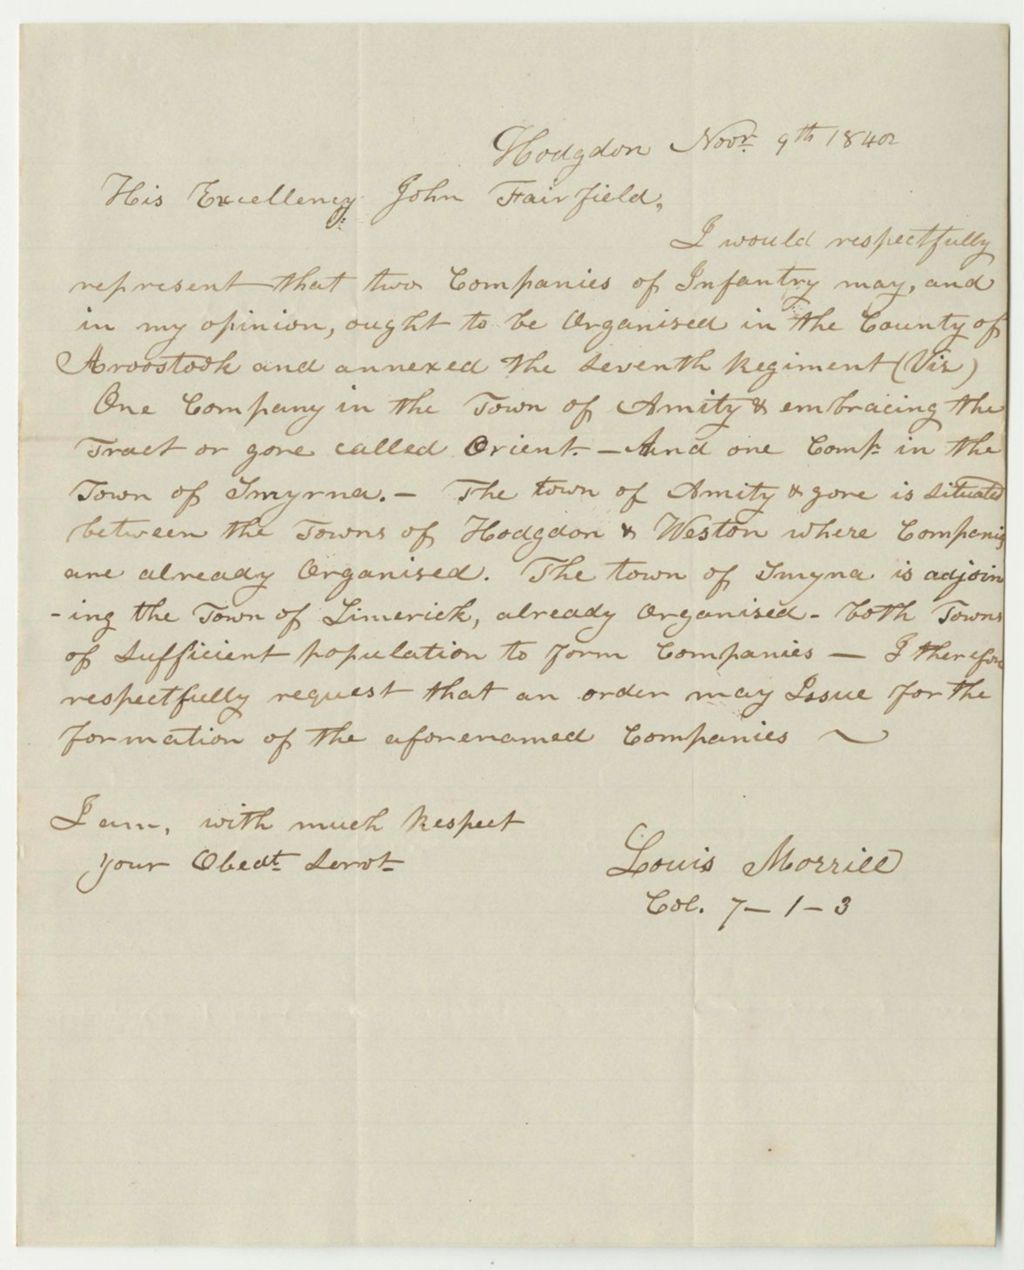 Hodgdon Novr. 9th 1840
His Excellency John Fairfield,
I would respectfully
represent that two Companies of Infantry may, and
in my opinion, ought to be Organised in the County of
Aroostook and annexed the Seventh Regiment (Viz)
One Company in the Town of Amity & embracing the
Tract or gore called Orient. – And one Comp. in the
Town of Smyrna. – The town of Amity & gore is situated
between the Towns of Hodgdon & Weston where Companis
are already Organised. The town of Smyna is adjoin
-ing the Town of Limerick, already Organised - both Towns
of Sufficient population to form Companies — I therefore
respectfully request that an order may Issue for the
formation of the aforenamed Companies ~
I am, with much Respect
your Obedt. Servt.
Louis Morrill
Col. 7 – 1 – 3